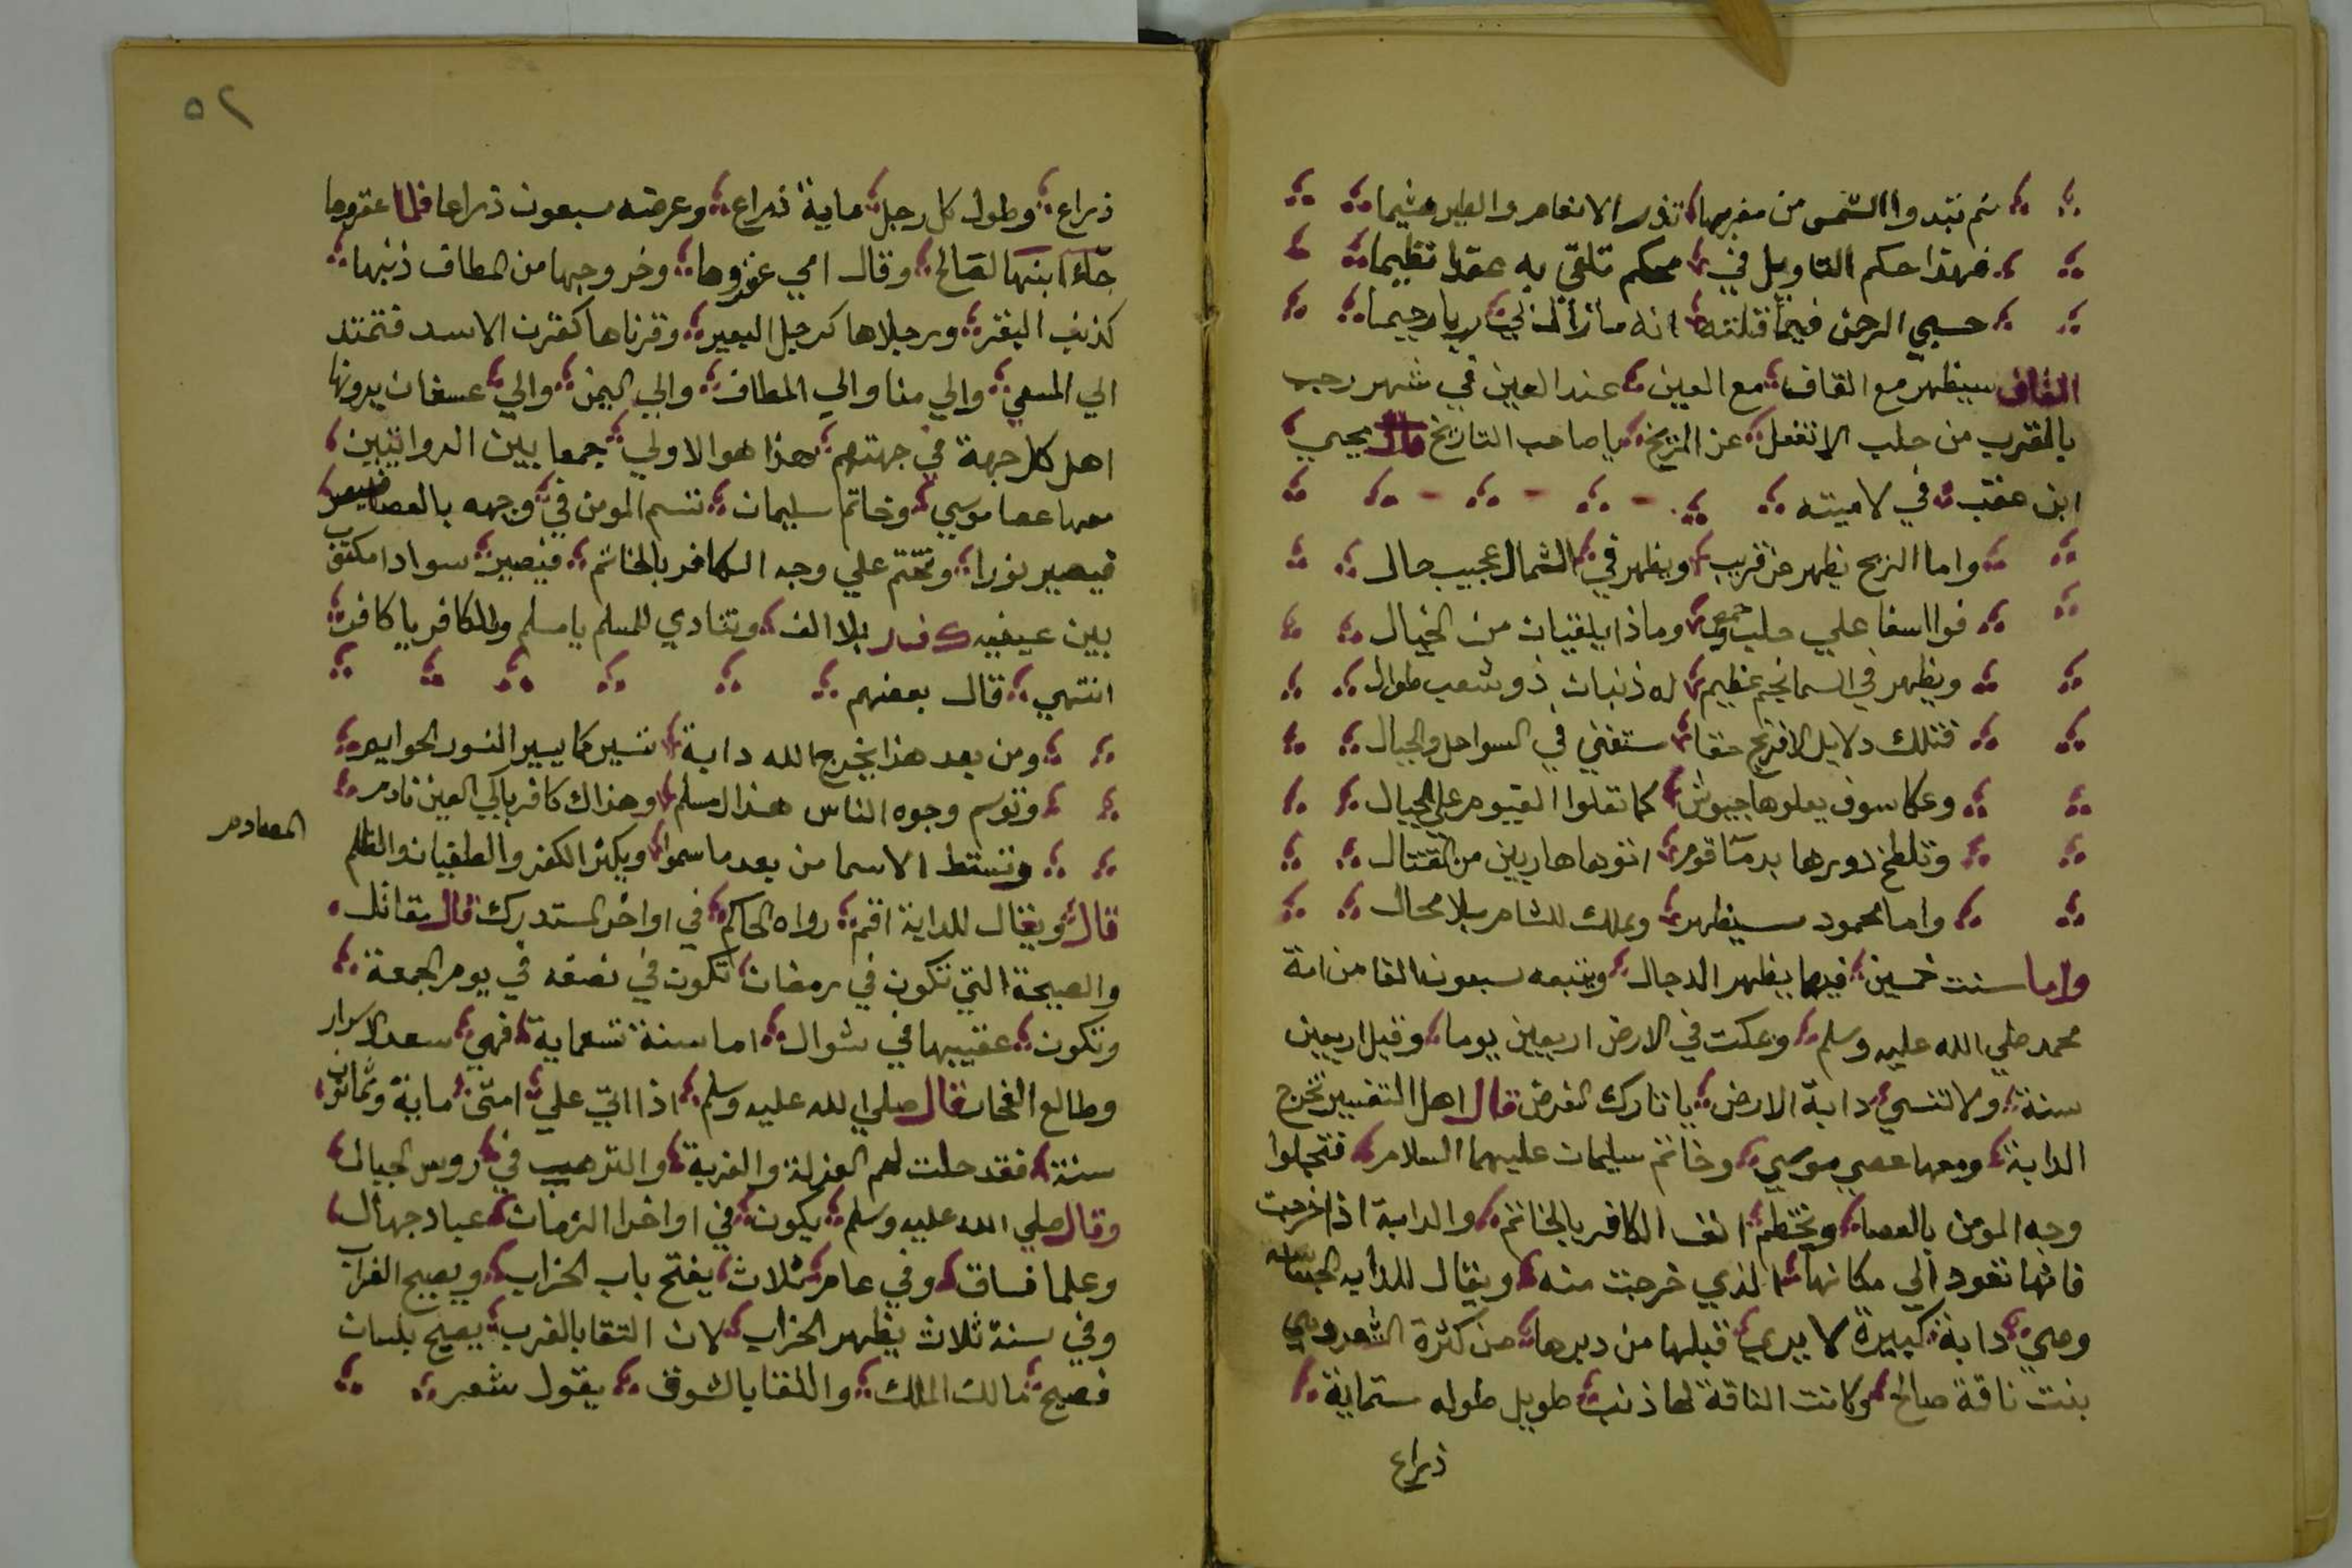 ثم تبدوا الشمس من مغربها تذر الانعام والطير هشيما
فهذا حكم التاويل في محكم تلقي به عقدا نظيما
حسبي الرحمن فيما قلته انه مازال لي ربا رحيما
القاف سيظهر مع القاف مع العين عند العين في شهر رجب
بالقرب من حلب لا تغفل عن المريخ يا صاحب التاريخ قال يحيي
ابن عقب في لاميته
واما الريح يظهر عن قريب ويظهر في الشمال عجيب حال
فوا اسفا علي حلب وحمص وماذا يلقيان من الخبال
ويظهر في السما نجم عظيم له ذنبان ذو شعب طوال
فتلك دلايل الافرنج حقا ستفني في السواحل والجبال
وعكا سوف يعلوها جيوش كما تعلوا الغيوم علي الجبال
وتلطخ دورها بدما قوم اتوها هاربين من القتال
واما محمود سيظهر ويملك للشام بلا محال
واما سنت خمسين فيها يظهر الدجال ويتبعه سبعون الفا من امة
محمد صلي الله عليه وسلم ويمكث في الارض اربعين يوما وقبل اربعين
سنة ولا تنسي دابة الارض يا تارك الفرض قال اهل التفسير تخرج
الدابة ومعها عصي موسي وخاتم سليمان عليهما السلام فتجلوا
وجه المومن بالعصا وتختطم انف الكافر بالخاتم والدابة اذا خرجت
فانها تعود الي مكانها الذي خرجت منه ويقال للدابه الجساسه
وهي دابة كبيرة لا يري قبلها من دبرها من كثرة الشعر وهي
بنت ناقة صالح وكانت الناقة لها ذنب طويل طوله ستماية
ذراع
٥٢
ذراع وطول كل رجل ماية ذراع وعرضه سبعون ذراعا فلما عقروها
جاء ابنها لصالح وقال امي عقروها وخروجها من المطاف ذنبها
كذنب البقر ورجلاها كرجل البعير وقرناها كقرن الاسد فتمتد
الي المسعي والي منا والي المطاف والي اليمن والي عسفان يرونها
اهل كل جهة في جهتهم هذا هو الاولي جمعا بين الروايتين
معها عصا موسي وخاتم سليمان تنسم المومن في وجهه بالعصا
فيصير نورا وتختم علي وجه الكافر بالخاتم فيصير سوادا مكتوب
بين عينيه كفر بلا الف وتنادي للمسلم يا مسلم وللكافر يا كافر
انتهي قال بعضهم
ومن بعد هذا يخرج الله دابة تسير كما يسير النسور الحوايم
وتوسم وجوه الناس هذا لمسلم وهذاك كافر باكي العين نادم
وتسقط الاسما من بعد ما سموا ويكثر الكفر والطغيان والظلم
المصادم
قال ويقال للدابة اقم رواه الحاكم في اواخر المستدرك قال مقاتل
والصيحة التي تكون في رمضان تكون في نصفه في يوم الجمعة
وتكون عقيبها في شوال اما سنة تسعماية فهي سعد الاسرار
وطالع الفخار قال صلي الله عليه وسلم اذا اتي علي امتي ماية وثمانون
سنة فقد حلت لهم العزلة والغربة والترهيب في روس الجبال
وقال صلي الله عليه وسلم يكون في اواخر الزمان عباد جهال
وعلما فساق وفي عام ثلاث يفتح باب الخراب ويصيح الغراب
وفي سنة ثلاث يظهر الخراب لان التقا بالغرب يصيح بلسان
فصيح مالك الملك واللقا بالشوق يقول شعر